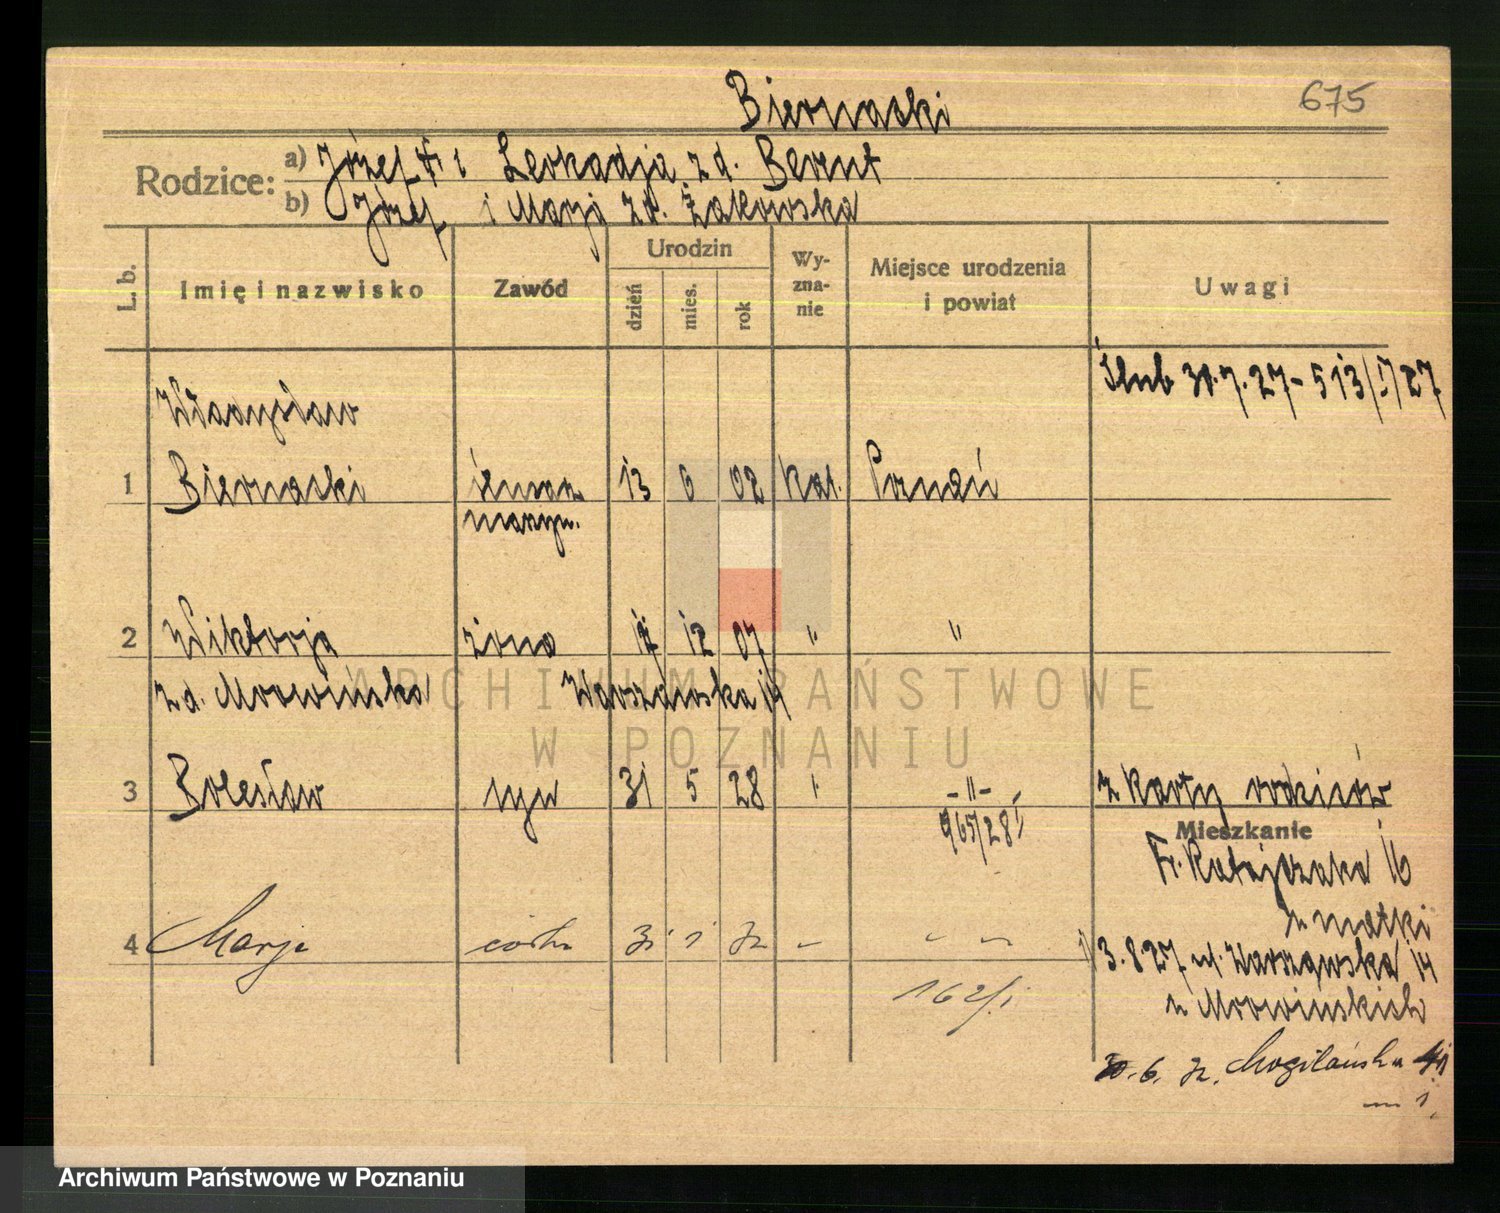 Biernaski 675
Rodzice: a) Józef i Leokadja zd. Bernt
b) Józef i Marja zd. Żakowska
L. b. Imię i nazwisko Zawód Urodzin dzień mies. rok Wyznanie Miejsce urodzenia i powiat Uwagi
Ślub 30.7.27 - 513/I/27
Władysław
1 Biernaski 13 6 02 kat. Poznań
2 Wiktorja żona 17 12 07 " "
zd. Mrowińska Warszawska 14
ARCHIWUM PAŃSTWOWE
W POZNANIU
3 Bolesław syn 31 5 28 " - " - z karty rodziców
965/28 I
Mieszkanie
Fr. Ratajczaka 16
u matki
4 Marja córka 31 1 32 - - -
3.8 27 ul. Warszawska 14
162/I
u Mrowińskich
30. 6. 32. Mogilańska
m 1.
Archiwum Państwowe w Poznaniu